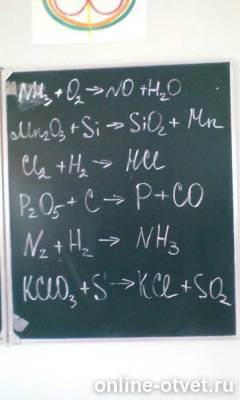 NH₃ + O₂ → NO + H₂O
Mn₂O₃ + Si → SiO₂ + Mn
Cl₂ + H₂ → HCl
P₂O₅ + C → P + CO
N₂ + H₂ → NH₃
KClO₃ + S → KCl + SO₂
online-otvet.ru